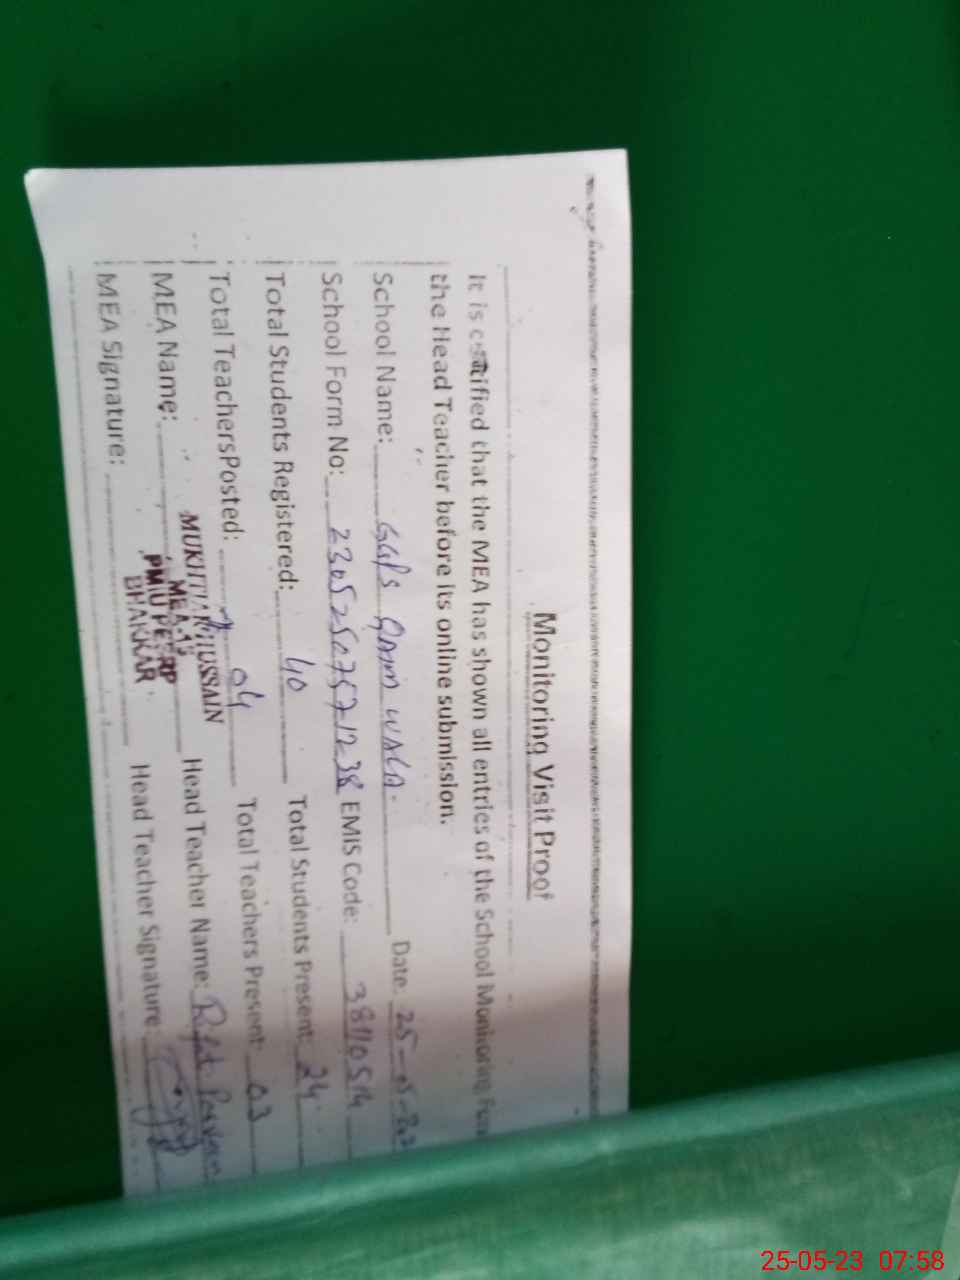 Monitoring Visit Proof
It is certified that the MEA has shown all entries of the School Monitoring Form
the Head Teacher before its online submission.
School Name: GGPS QAIM WALA. Date. 25-05-23
School Form No: EMIS Code: 38110514
Total Students Registered: 40 Total Students Present: 24
Total TeachersPosted: 04 Total Teachers Present: 03
MEA Name: MUKHTIAR HUSSAIN Head Teacher Name: Rifat Parveen
MEA-13
PMIU PESRP
BHAKKAR
MEA Signature: Head Teacher Signature:
25-05-23 07:58